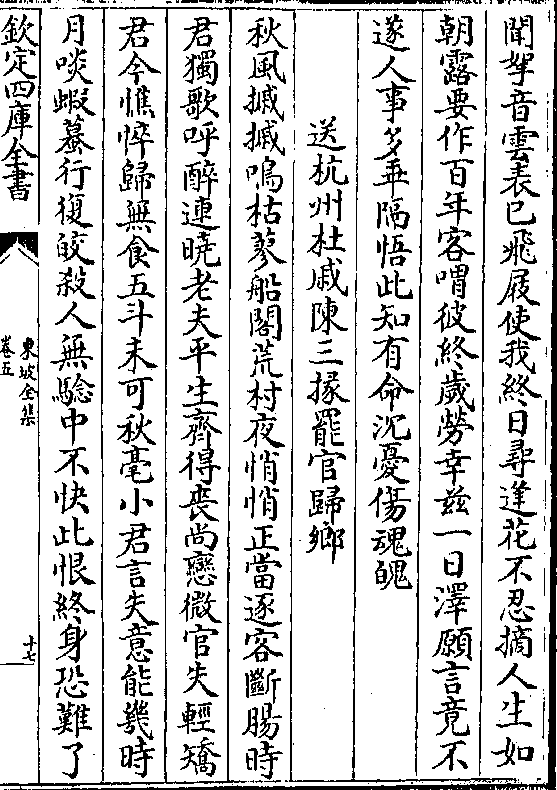 聞拏音雲表已飛屐使我終日尋逢花不忍摘人生如
朝露要作百年客喟彼終歲勞幸兹一日澤願言竟不
遂人事多乖隔悟此知有命沉憂傷魂魄
送杭州杜戚陳三掾罷官歸鄉
秋風摵摵鳴枯蓼船閣荒村夜悄悄正當逐客斷腸時
君獨歌呼醉連曉老夫平生齊得喪尚戀微官失輕矯
君今憔悴歸無食五斗未可秋毫小君言失意能幾時
月啖蝦蟇行復皎殺人無驗中不快此恨終身恐難了
欽定四庫全書
東坡全集
卷五
十七